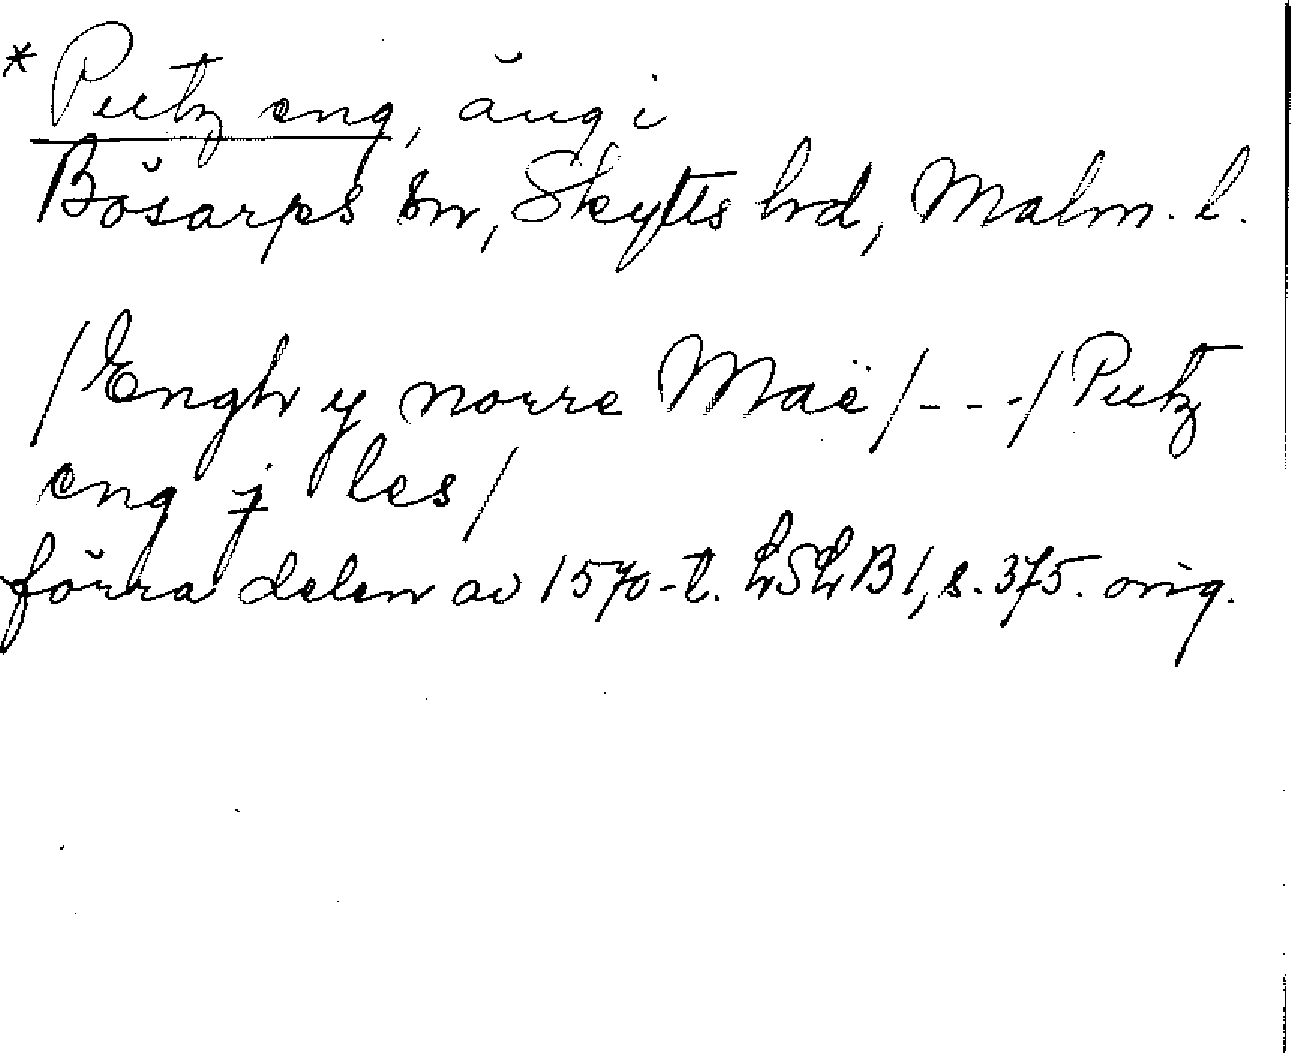 * Putz eng, äng i
Bösarps sn, Skytts hd, Malm. l.
/Engh y norre Maë/---/Putz
eng j les/
förra delen av 1570-t. LSLB 1, s. 375. orig.